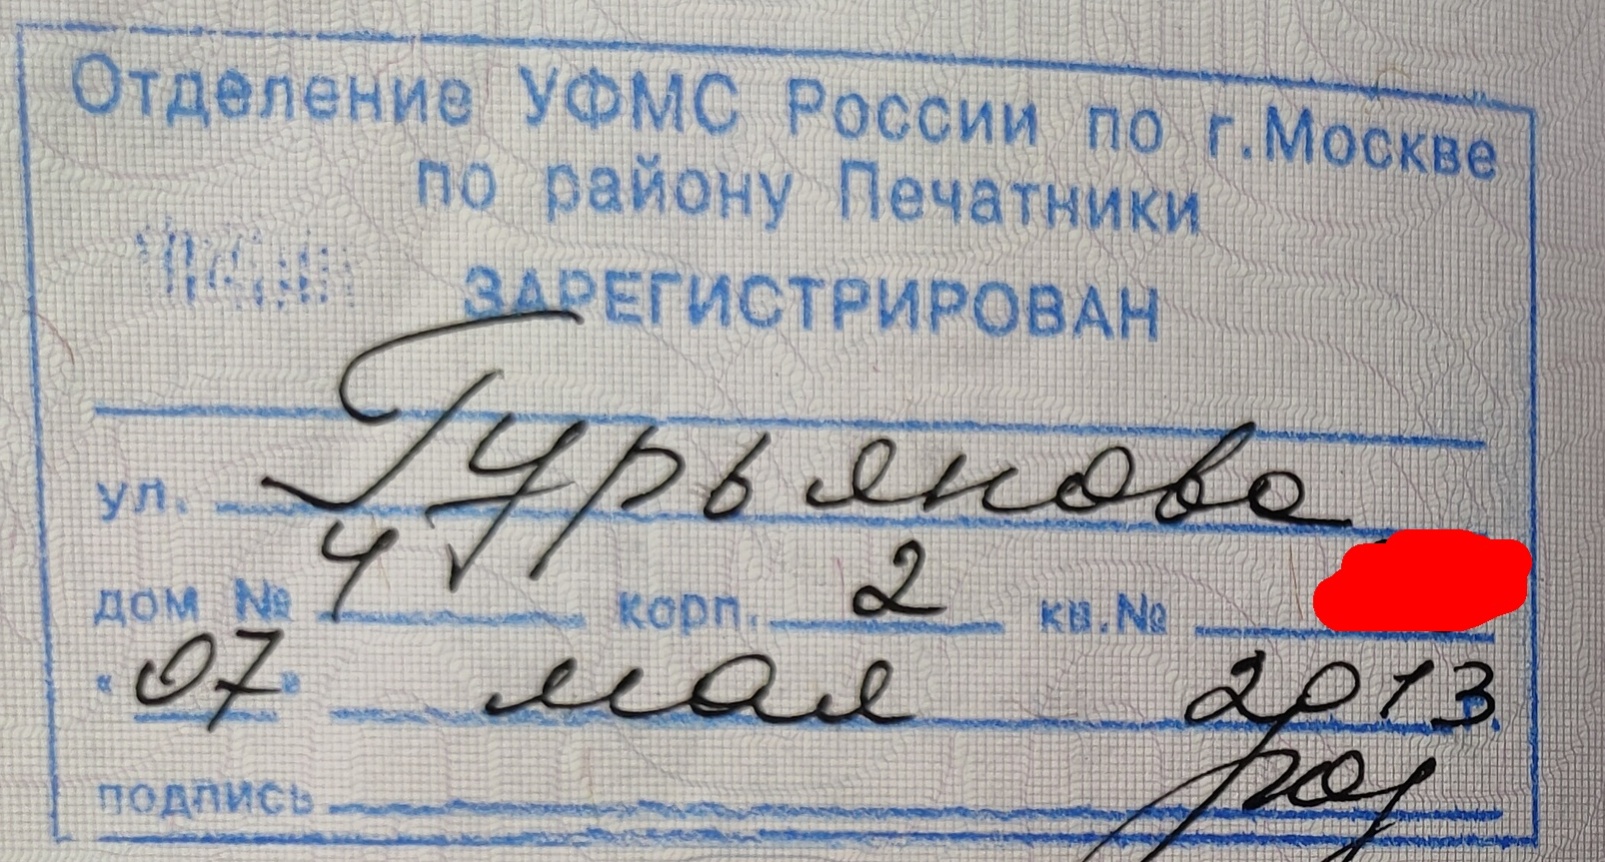 Отделение УФМС России по г.Москве
по району Печатники
ЗАРЕГИСТРИРОВАН
ул. Гурьянова
дом № 4 корп. 2 кв.№
«07» мая 2013 г.
подпись